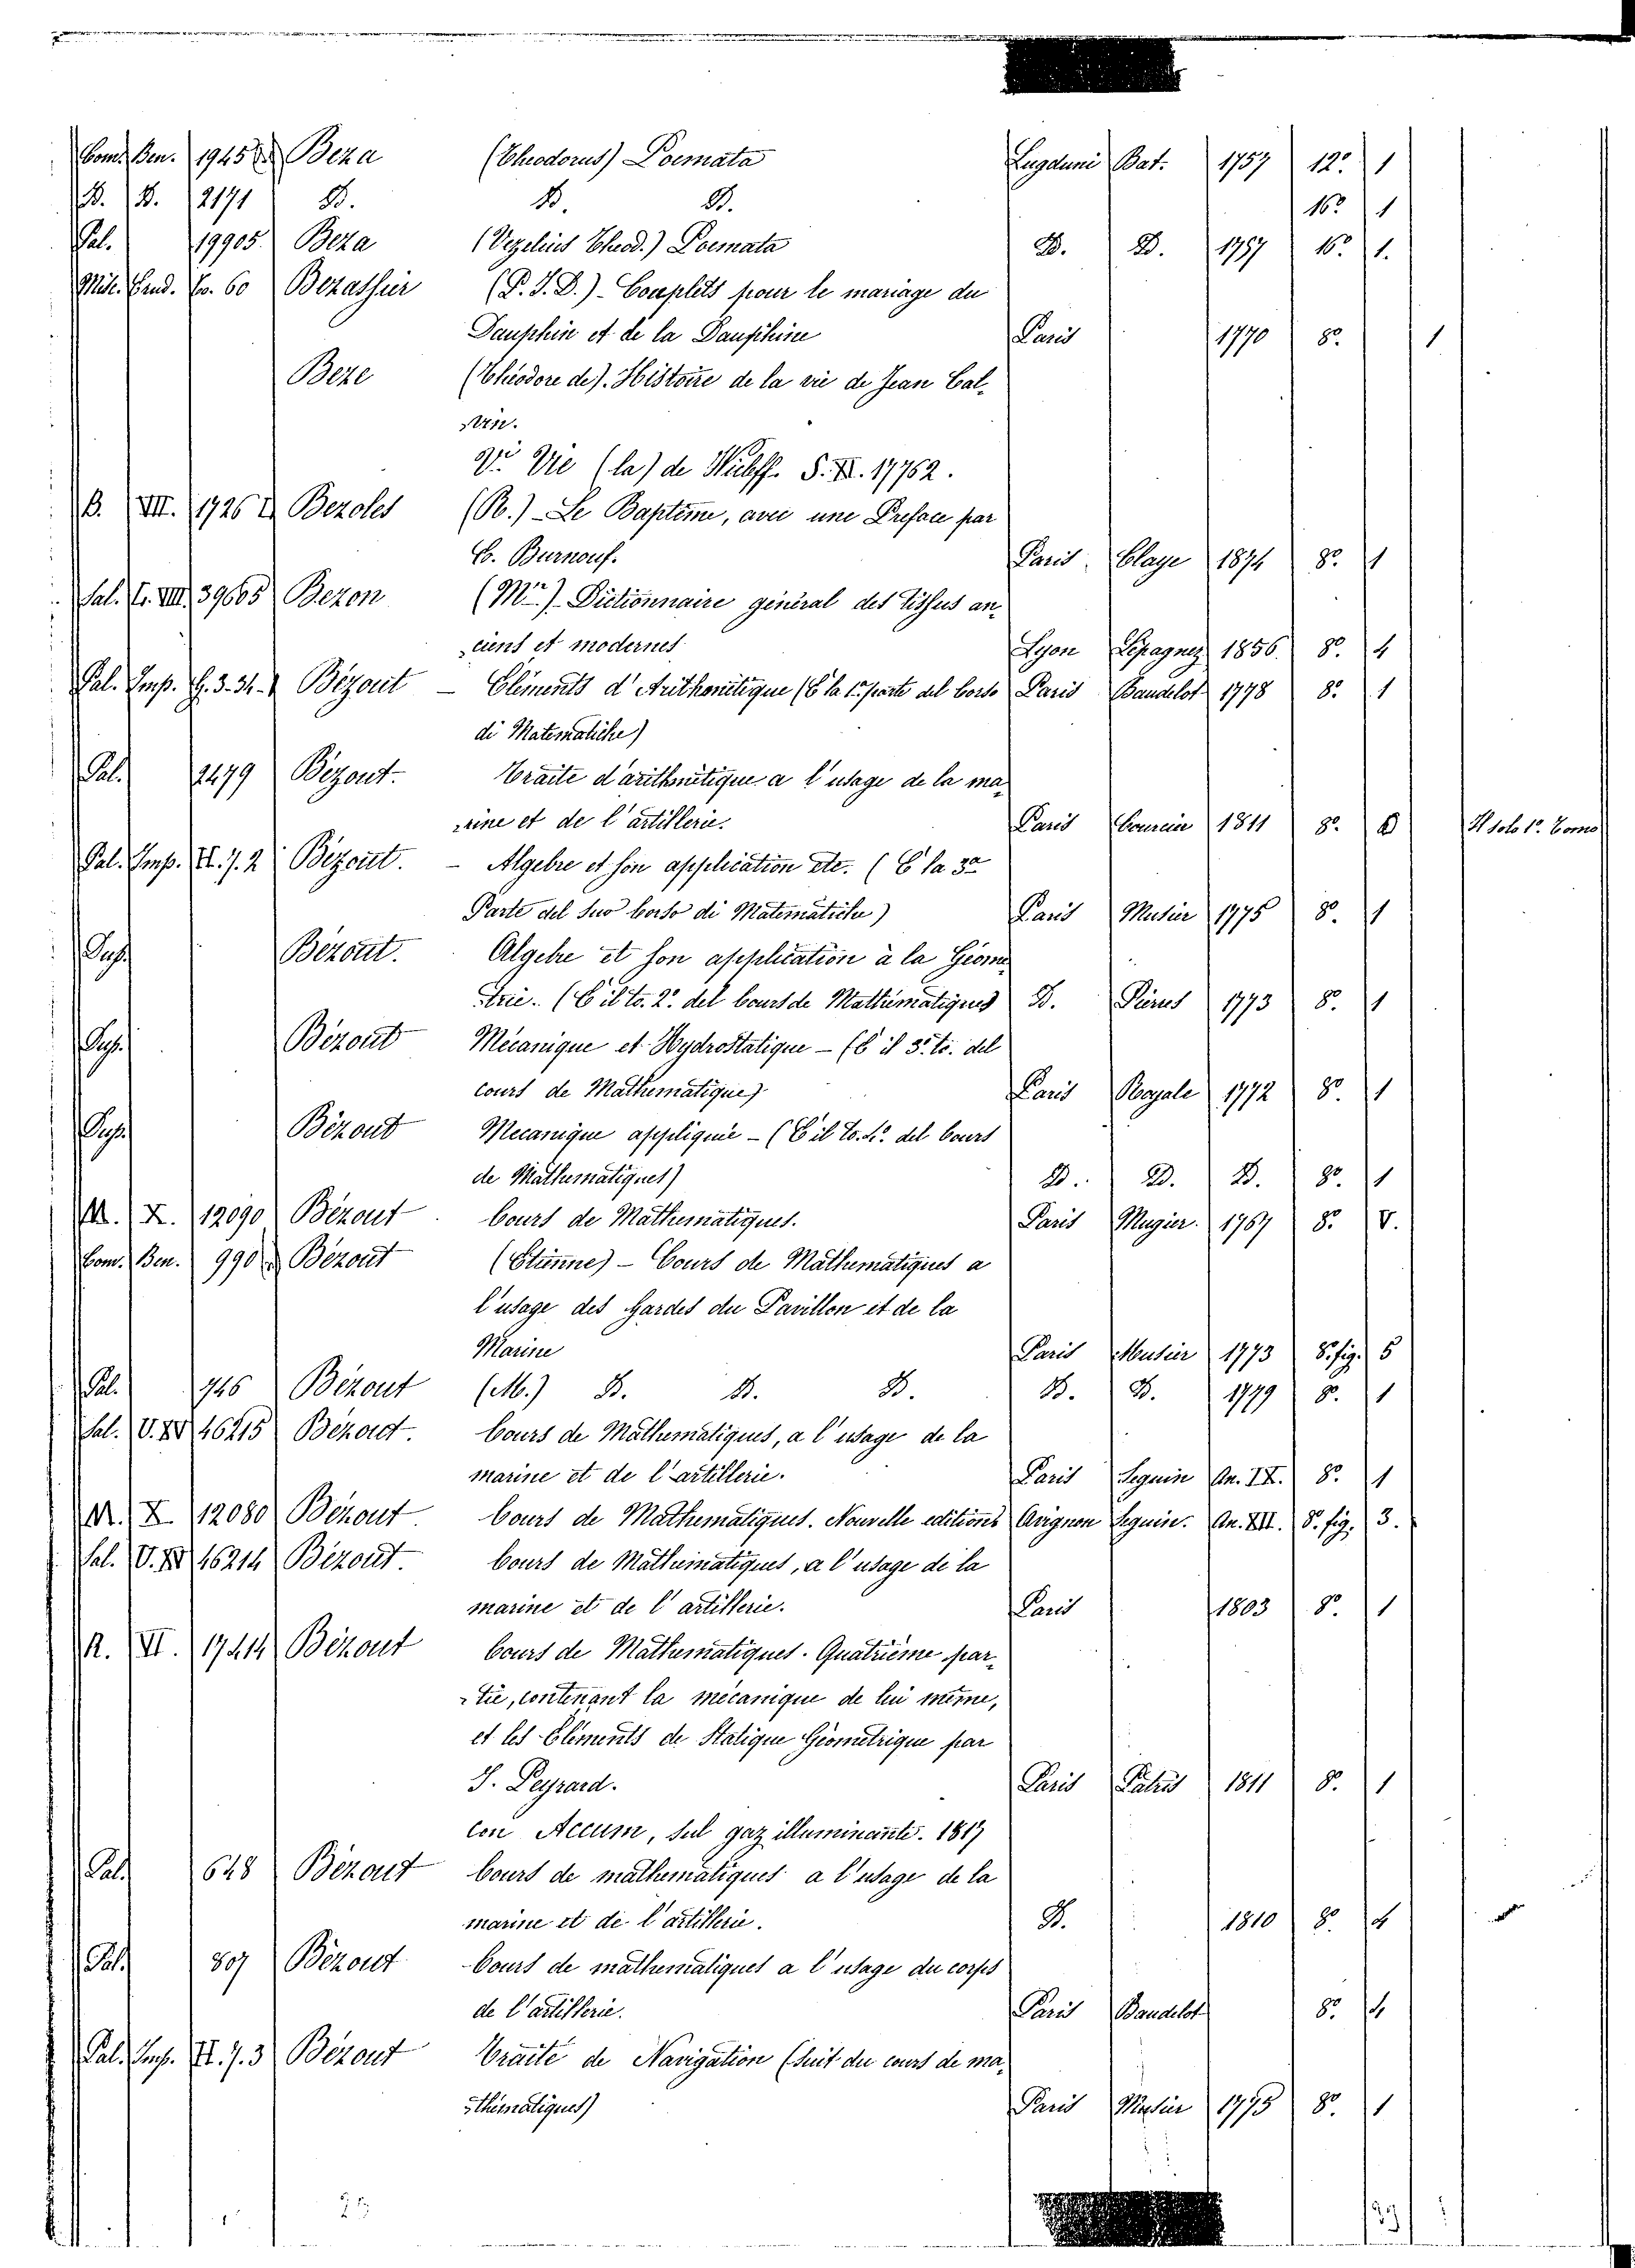 Com. Ben. 1945 Beza (Theodorus) Poemata Lugduni Bat. 1757 12.° 1
D. D. 2171 D. D. D. 16.° 1
Pal. 19905 Beza (Vezelius Theod.) Poemata D. D. 1757 16.° 1.
Misc. Erud. Co. 60 Bezassier (P. J. D.) - Couplets pour le mariage du
Dauphin et de la Dauphine Paris 1770 8.° 1
Beze (Théodore de). Histoire de la vie de Jean Cal-
vin.
V.i Vie (la) de S. X. 17762.
B. VIII. 1726 Bezoles (R.) - Le Baptême, avec une Preface par
E. Burnouf. Paris Claye 1874 8.° 1
Sal. Cr. VIII. 39665 Bezon (M.r) - Dictionnaire général des Tissus an-
ciens et modernes Lyon Lepagnez 1856. 8.° 4
Pal. Imp. G. 3. 34. Bézout - Eléments d'Arithmétique (È la 1.a parte del Corso Paris Baudelot 1778 8.° 1
di Matematiche)
Pal. 2479 Bezout. Traite d'arithmétique a l'usage de la ma-
rine et de l'artillerie. Paris Courcier 1811 8.° Il solo 1.° Tomo
Pal. Imp. II. 7. 2 Bézout. - Algebre et son application etc. (È la 3.a
Parte del suo Corso di Matematiche) Paris Musier 1775 8.° 1
Sup. Bézout. Algebre et son application à la Géome-
trie. (È il to. 2.° del Cours de Mathématiques D. Pierres 1773 8.° 1
Sup. Bézout Mécanique et Hydrostatique - (È il 3.° to. del
cours de Mathematique) Paris Royale 1772 8.° 1
Sup. Bézout Mecanique appliquée - (È il To. 4.° del Cours
de Mathématiques) D. D. D. 8.° 1
M. X. 12090 Bézout Cours de Mathématiques. Paris Mugier. 1767 8.° V.
Com. Ben. 990 Bézout (Etienne) - Cours de Mathématiques a
l'usage des Gardes du Pavillon et de la
Marine Paris Musier 1773 8.° fig. 5
Pal. 746 Bézout (M.) D. D. D. D. D. 1779 8.° 1
Sal. V. XV 46215 Bézout. Cours de Mathématiques, a l'usage de la
marine et de l'artillerie. Paris Seguin An. IX. 8.° 1
M. X. 12080 Bézout Cours de Mathematiques. Nouvelle editiones Avignon Seguin. An. XII. 8.° fig. 3.
Sal. V. XV 46214 Bézout. Cours de Mathématiques, a l'usage de la
marine et de l'artillerie. Paris 1803 8.° 1
R. VI. 17414 Bézout Cours de Mathematiques. Quatrième par-
tie, contenant la mécanique de lui même,
et les Eléments de Statique Géometrique par
J. Peyrard. Paris Patris 1811 8.° 1
con Accum, sul gaz illuminante. 1817
Pal. 628 Bézout Cours de mathematiques a l'usage de la
marine et de l'artillerie. D. 1810 8.° 4
Pal. 807 Bézout Cours de mathematiques a l'usage du corps
de l'artillerie. Paris Baudelot 8.° 4
Pal. Imp. II. 7. 3 Bézout Traité de Navigation (Suit du cours de ma-
thématiques) Paris Musier 1775 8.° 1